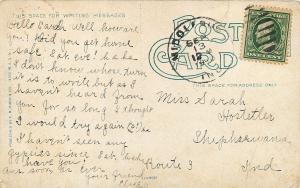 THIS SPACE FOR WRITING MESSAGES
POST CARD
Hello Sarah well how are
you? Did you get home
safe last eve? ha ha
I don't know whose turn
it is to write but as I
haven't heard from
you for so long I thought
I would try again
I haven't seen any
gypsies since
soon as ever
your friend
MIDDLEBURY
IND
THIS SPACE FOR ADDRESS ONLY
Miss Sarah
Hostetler
Shipshewana
Route 3 Ind